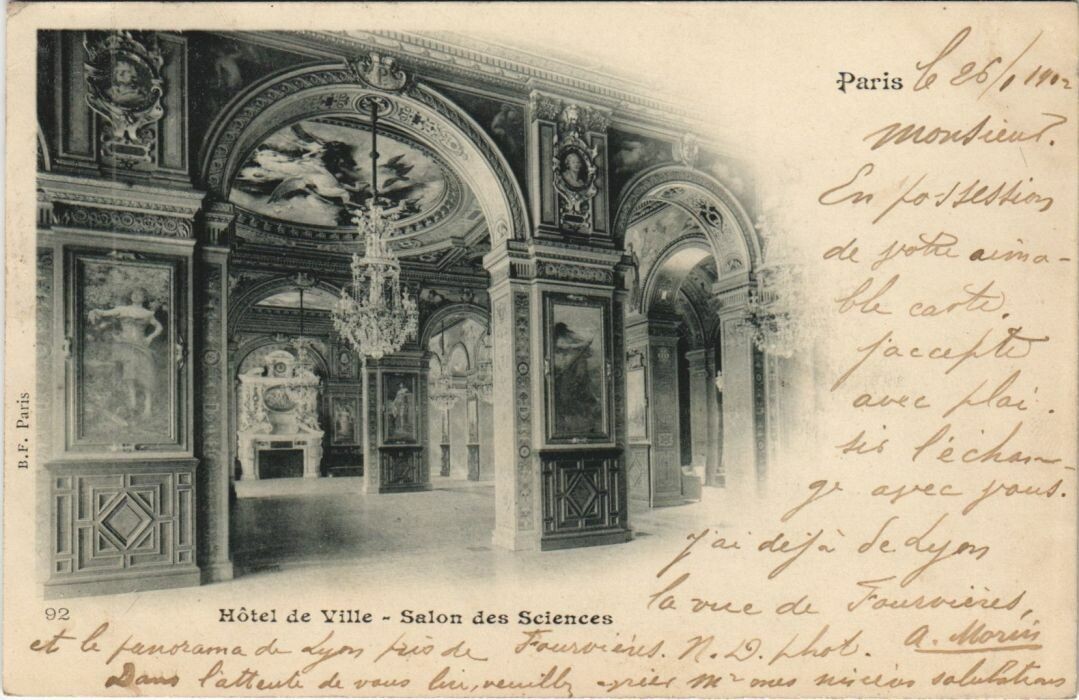 Paris le 26/1 1902
Monsieur.
En possession
de votre aima-
ble carte.
j'accepte
avec plai.
sir l'échan-
ge avec vous.
j'ai déjà de Lyon
la vue de Fourvières,
et le panorama de Lyon pris de Fourvières. N. D. phot. A. Morin
Dans l'attente de vous lire, veuillez agréer Mr mes sincères salutations
B.F. Paris
92
Hôtel de Ville - Salon des Sciences